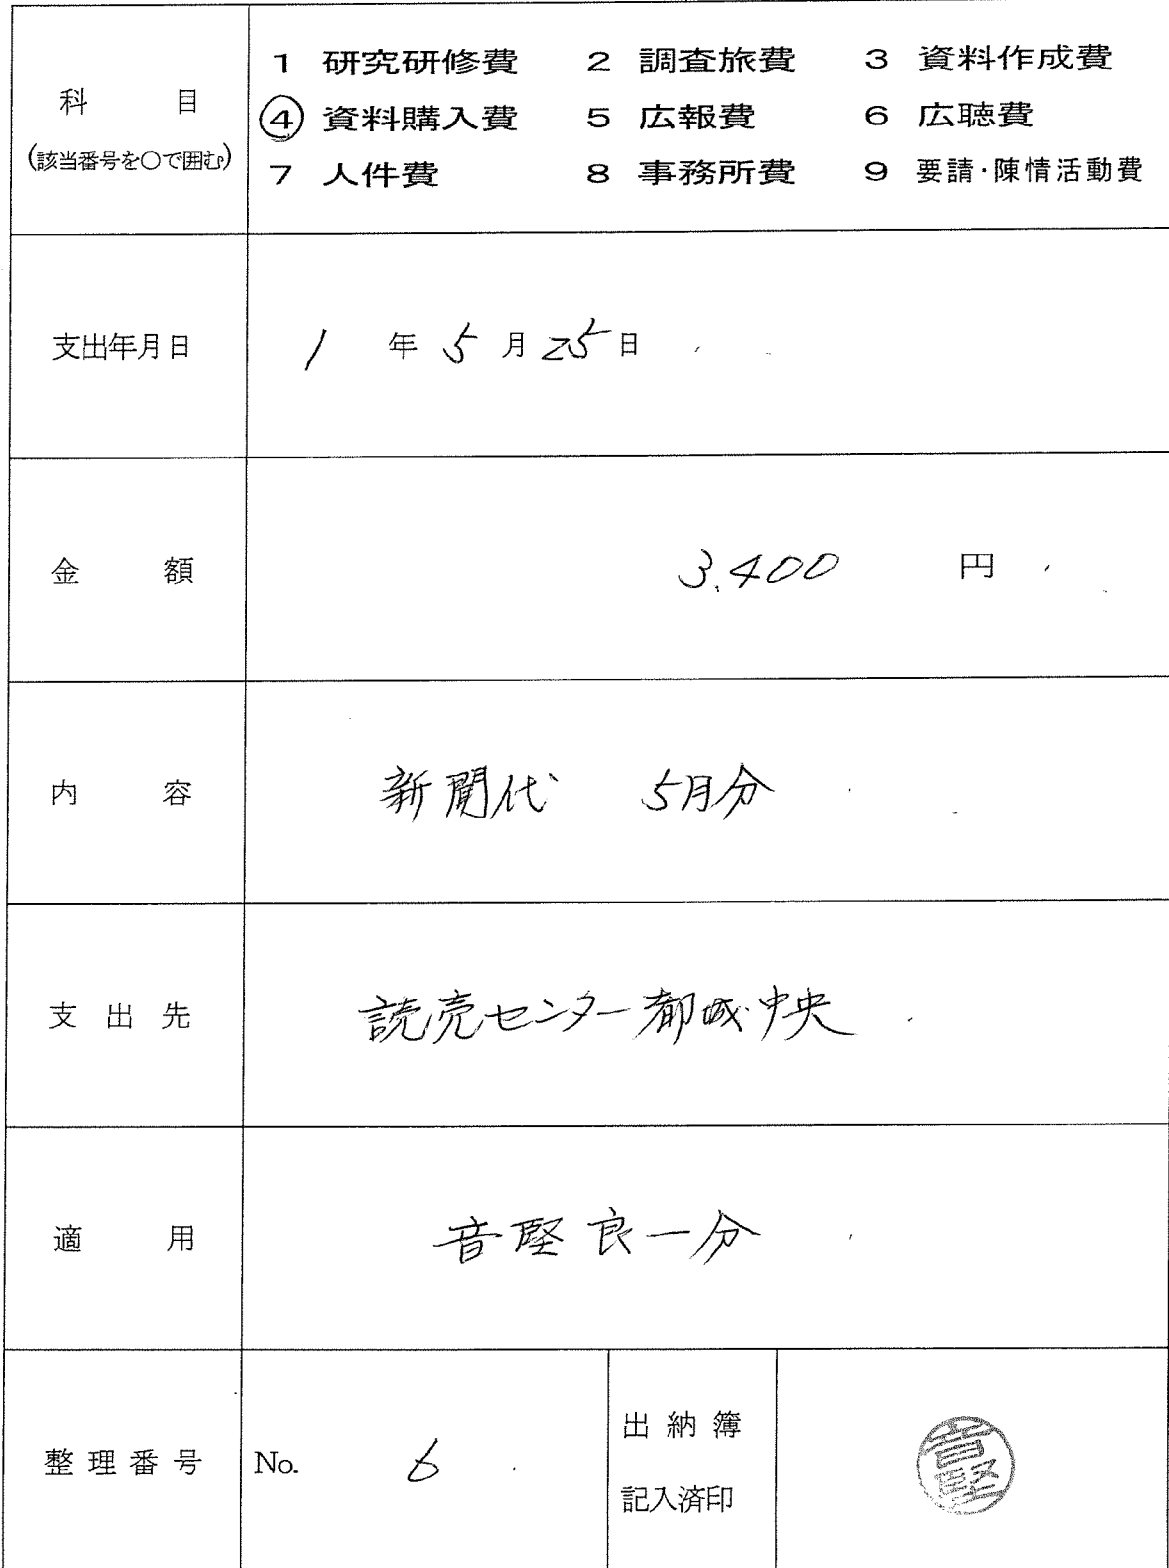 科目
(該当番号を○で囲む)
1 研究研修費 2 調査旅費 3 資料作成費
④ 資料購入費 5 広報費 6 広聴費
7 人件費 8 事務所費 9 要請・陳情活動費
支出年月日 1 年 5 月 25 日
金額 3,400 円
内容 新聞代 5月分
支出先 読売センター都城中央
適用 音堅良一分
整理番号 No. 6
出納簿
記入済印
音堅